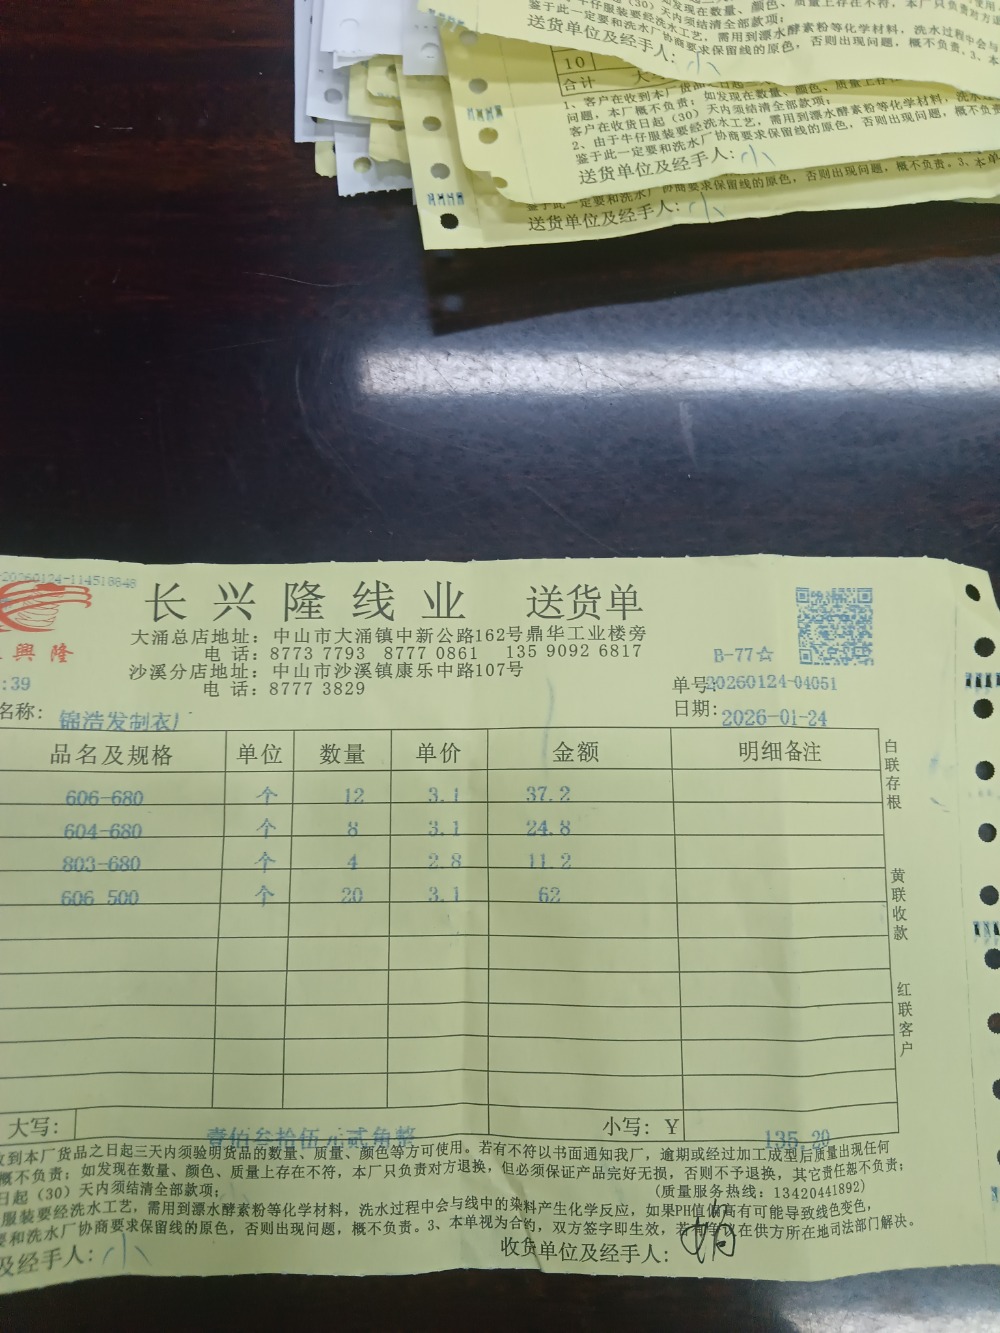 送货单位及经手人：小
10
合计
1、客户在收到本厂货品之日起
问题，本厂概不负责；如发现在数量、颜色、质量上存在
客户在收货日起（30）天内须结清全部款项；
2、由于牛仔服装要经洗水工艺，需用到漂水酵素粉等化学材料，洗水
鉴于此一定要和洗水厂协商要求保留线的原色，否则出现问题，概不负责。
送货单位及经手人：小
送货单位及经手人：小
20260124-114516648
长兴隆线业 送货单
興隆
大涌总店地址：中山市大涌镇中新公路162号鼎华工业楼旁
电 话：8773 7793 8777 0861 135 9092 6817
沙溪分店地址：中山市沙溪镇康乐中路107号
电 话：8777 3829
B-77☆
:39
单号:20260124-04051
名称：锦浩发制衣厂
日期：2026-01-24
品名及规格 单位 数量 单价 金额 明细备注
606-680 个 12 3.1 37.2
604-680 个 8 3.1 24.8
803-680 个 4 2.8 11.2
606 500 个 20 3.1 62
白联存根
黄联收款
红联客户
大写：壹佰叁拾伍元贰角整 小写：Y 135.20
收到本厂货品之日起三天内须验明货品的数量、质量、颜色等方可使用。若有不符以书面通知我厂，逾期或经过加工成型后质量出现任何
概不负责；如发现在数量、颜色、质量上存在不符，本厂只负责对方退换，但必须保证产品完好无损，否则不予退换，其它责任恕不负责；
日起（30）天内须结清全部款项； （质量服务热线：13420441892）
服装要经洗水工艺，需用到漂水酵素粉等化学材料，洗水过程中会与线中的染料产生化学反应，如果PH值偏高有可能导致线色变色，
要和洗水厂协商要求保留线的原色，否则出现问题，概不负责。3、本单视为合约，双方签字即生效，若有争议在供方所在地司法部门解决。
及经手人：小 收货单位及经手人：